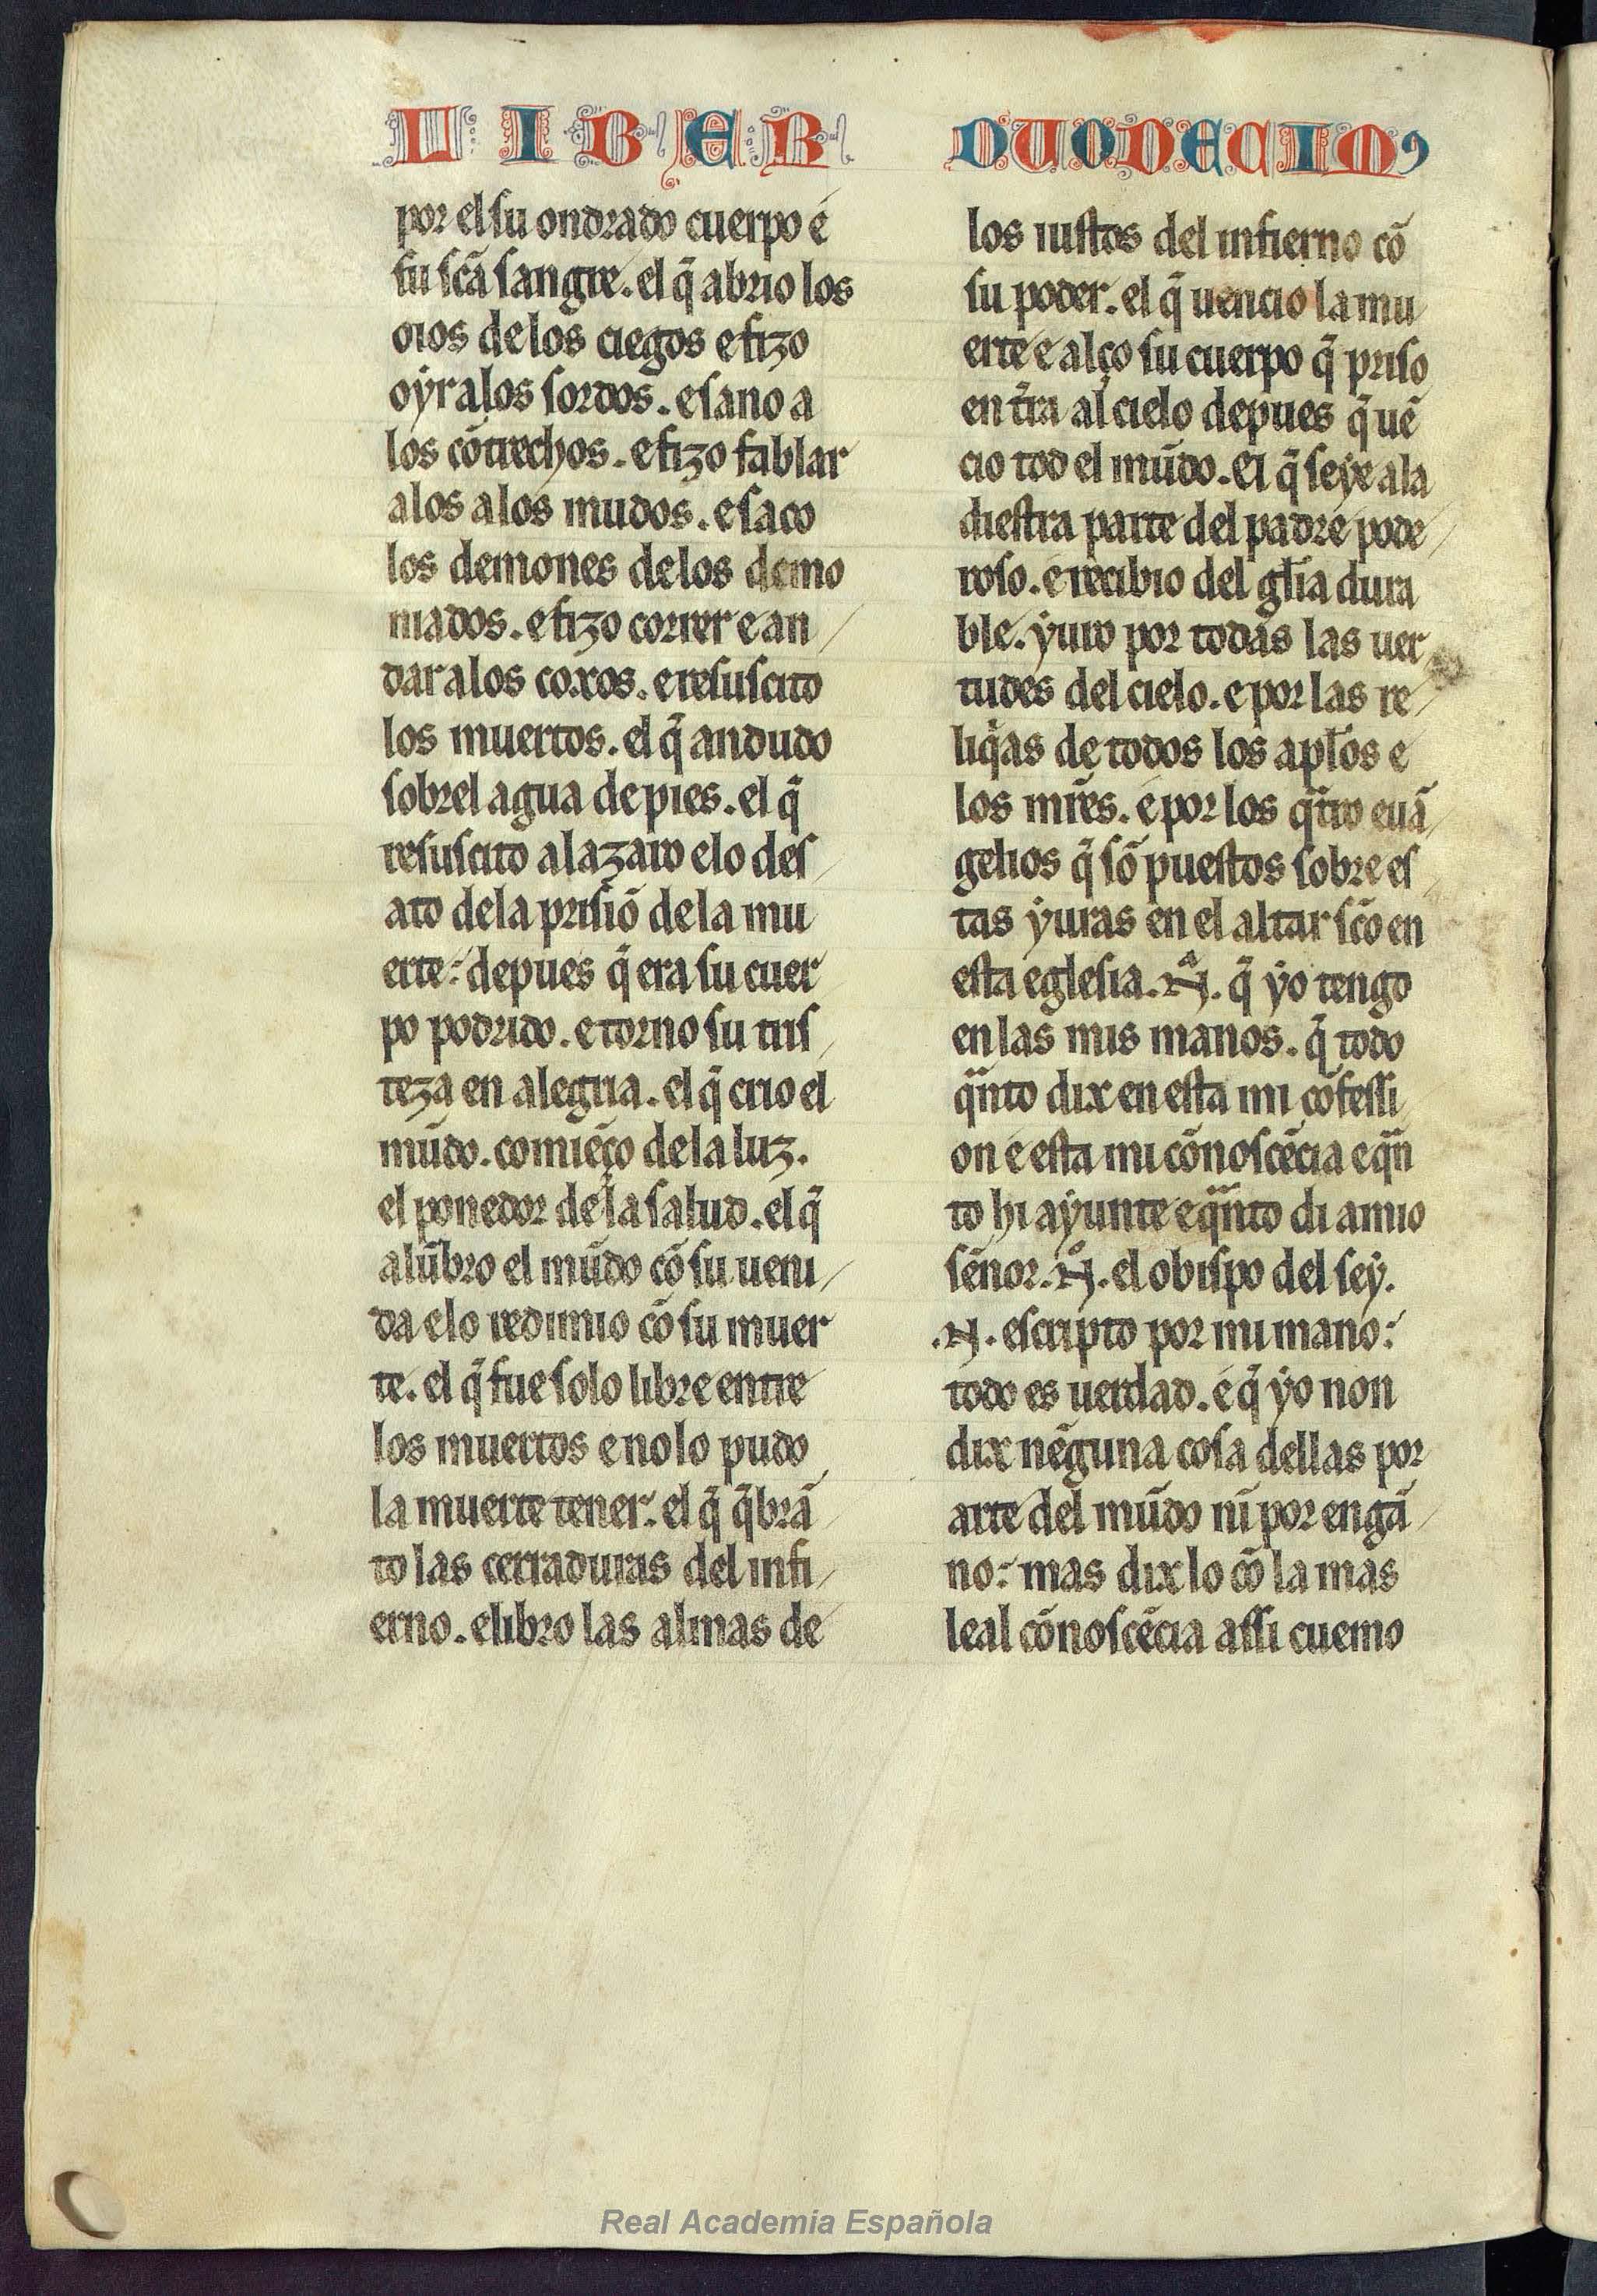 LIBER DUODECIMꝰ
por el su ondrado cuerpo e
su sc̃a sangre. el q̃ abrio los
oios de los ciegos e fizo
oyr a los sordos. e sano a
los cõtrechos. e fizo fablar
a los a los mudos. e saco
los demones de los demo
niados. e fizo correr e an
dar a los coxos. e resuscito
los muertos. el q̃ andudo
sobrel agua de pies. el q̃
resuscito a lazaro e lo des
ato de la prisiõ de la mu
erte: depues q̃ era su cuer
po podrido. e torno su tris
teza en alegria. el q̃ crio el
mũdo. comiẽço de la luz.
el ponedor de la salud. el q̃
alũbro el mũdo cõ su ueni
da e lo redimio cõ su muer
te. el q̃ fue solo libre entre
los muertos e no lo pudo
la muerte tener. el q̃ q̃brã
to las cerraduras del infi
erno. e libro las almas de
los iustos del infierno cõ
su poder. el q̃ uencio la mu
erte e alço su cuerpo q̃ priso
en tr̃ra al cielo depues q̃ uẽ
cio tod el mũdo. el q̃ seye a la
diestra parte del padre pode
roso. e recibio del gl̃ia dura
ble. yuro por todas las uer
tudes del cielo. e por las re
liq̃as de todos los apl̃os e
los mr̃es. e por los q̃tro euã
gelios q̃ sõ puestos sobre es
tas yuras en el altar sc̃o en
esta eglesia. .N. q̃ yo tengo
en las mis manos. q̃ todo
q̃nto dix en esta mi cõfessi
on e esta mi cõnoscẽcia e q̃n
to hi ayunte e q̃nto di a mio
sẽnor. .N. el obispo del sey.
.N. escripto por mi mano:
todo es uerdad. e q̃ yo non
dix nẽguna cosa dellas por
arte del mũdo nĩ por engã
no: mas dix lo cõ la mas
leal cõnoscẽcia assi cuemo
Real Academia Española